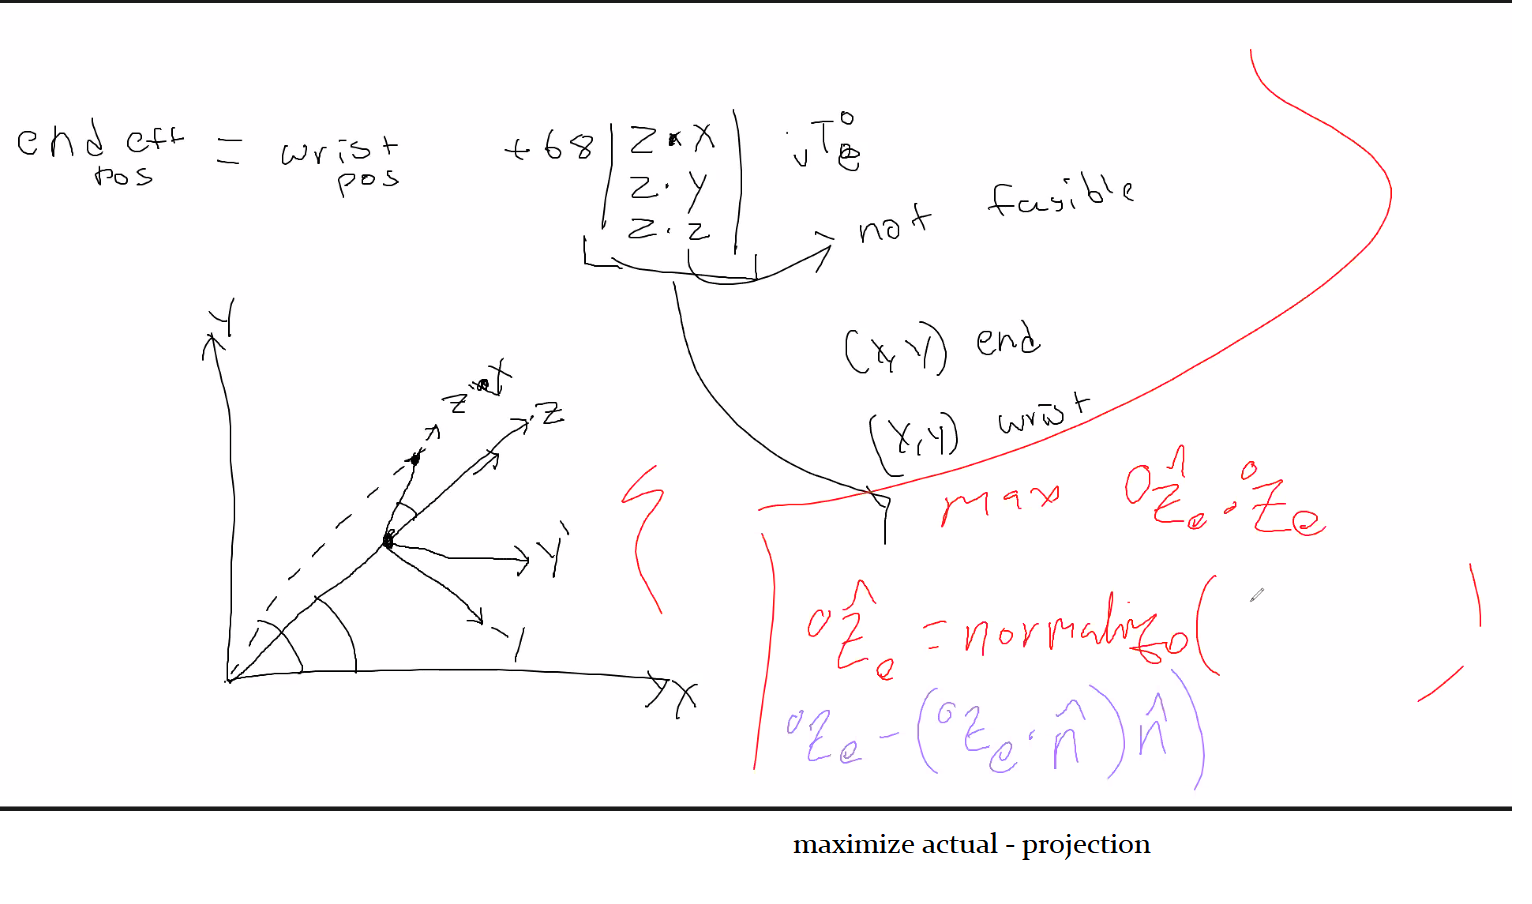 end eff pos = wrist pos +68 | Z • X |
Z · y
Z · z
T⁰e
not fasible
(X, Y) end
(X, Y) wrist
Y
Z • X
Z
Y'
Y
X
max ⁰Ẑe · ⁰Ze
⁰Ẑe = normalize (
⁰Ze - (⁰Ze · n̂) n̂)
maximize actual - projection